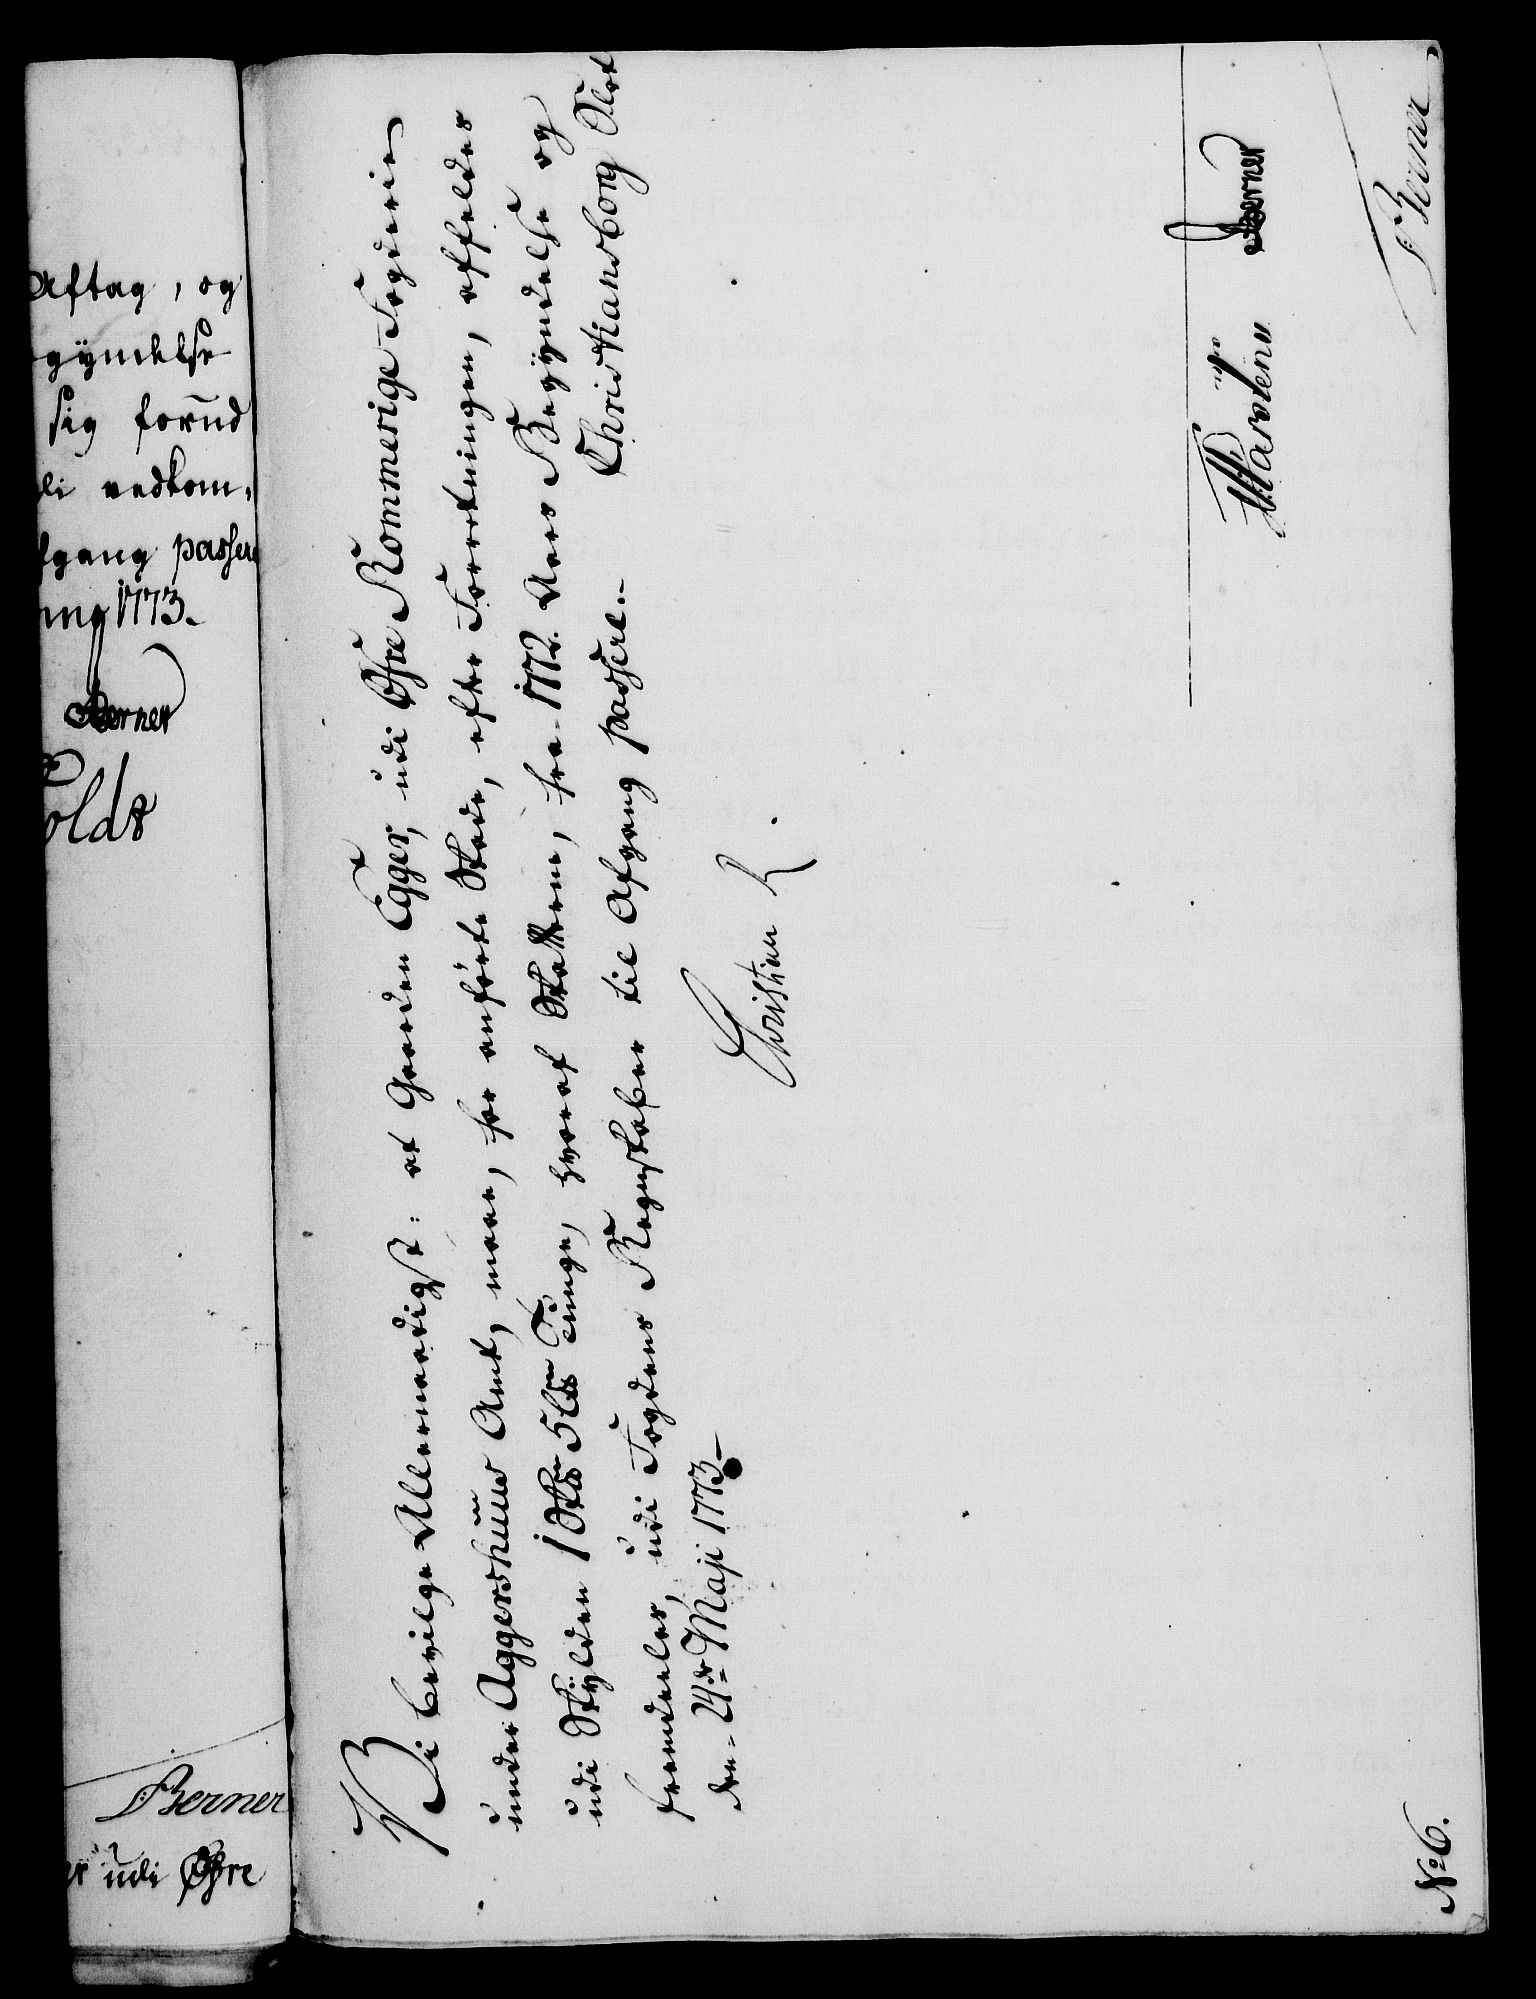 Aftag, og
gÿndelse
sig forud
di vedkom,
fgang passere
1773.
Berner
Holdt
Berner
udi Øfre
Vi bevilge Allernaadigst: at Gaarden Egger, udi Øfre Rommerige Fogderie
under Aggershuus Amt, maae, for anførte Skade, efter Forretningen, affældes
udi Skÿlden 1 Skd. 5 Ld. Tunge, hvoraf Skatterne, fra 1772. Aars Begÿndelse og
fremdeles, udi Fogdens Regnskaber til Afgang passere. Christiansborg Slot
den 24de Maji 1773.
Christian R
Martens Berner
Berner
No. 6.